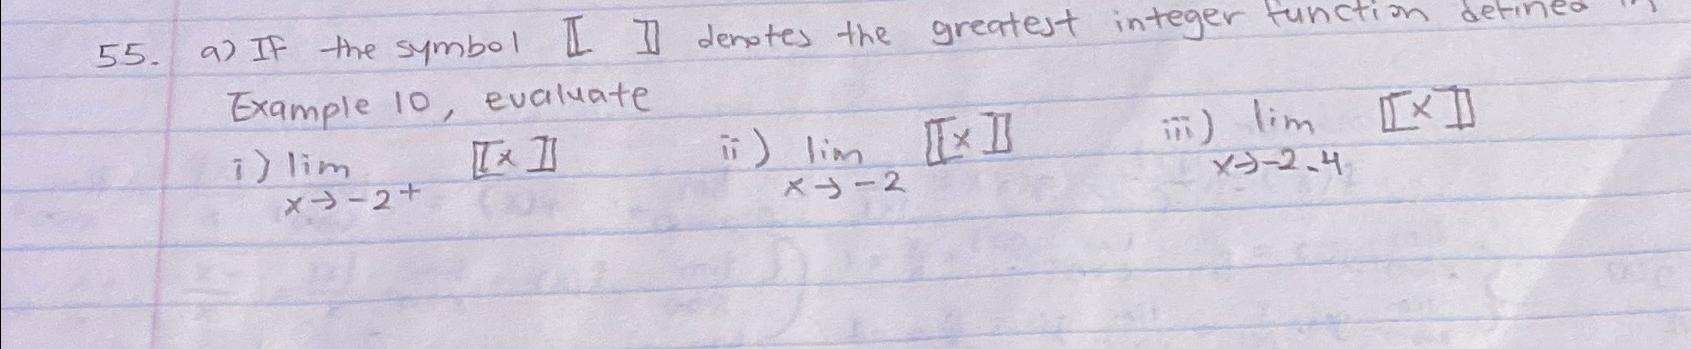 55. a) If the symbol ⟦ ⟧ denotes the greatest integer function defined in
Example 10, evaluate
i) lim ⟦x⟧ ii) lim ⟦x⟧ iii) lim ⟦x⟧
x→-2+ x→-2 x→-2.4